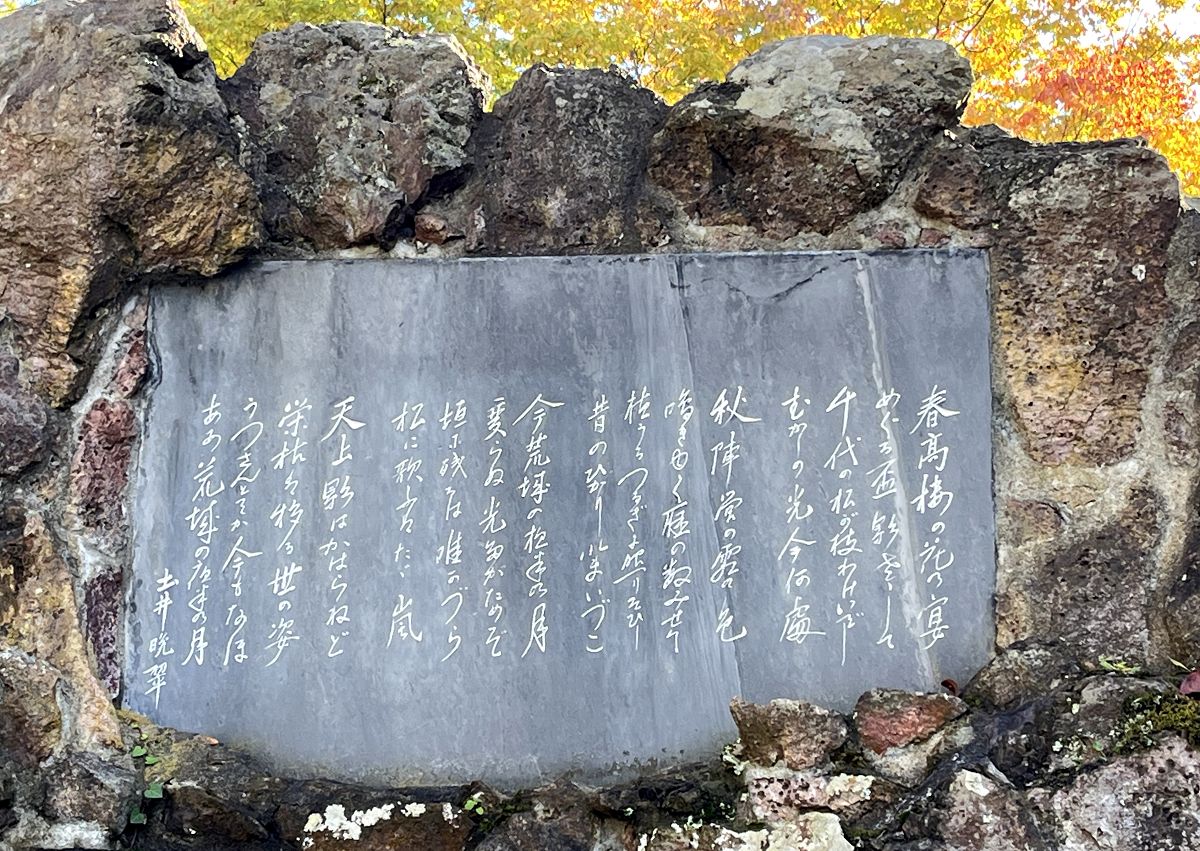 春高楼の花の宴
めぐる盃影さして
千代の松が枝わけいでし
むかしの光今何處
秋陣営の霜の色
鳴きゆく雁の数みせて
植うるつるぎに照りそひし
昔のひかり今いづこ
今荒城の夜半の月
変らぬ光誰がためぞ
垣に残るは唯かづら
松に歌ふはたゞ嵐
天上影はかはらねど
栄枯は移る世の姿
うつさんとてか今もなほ
あゝ荒城の夜半の月
土井晩翠